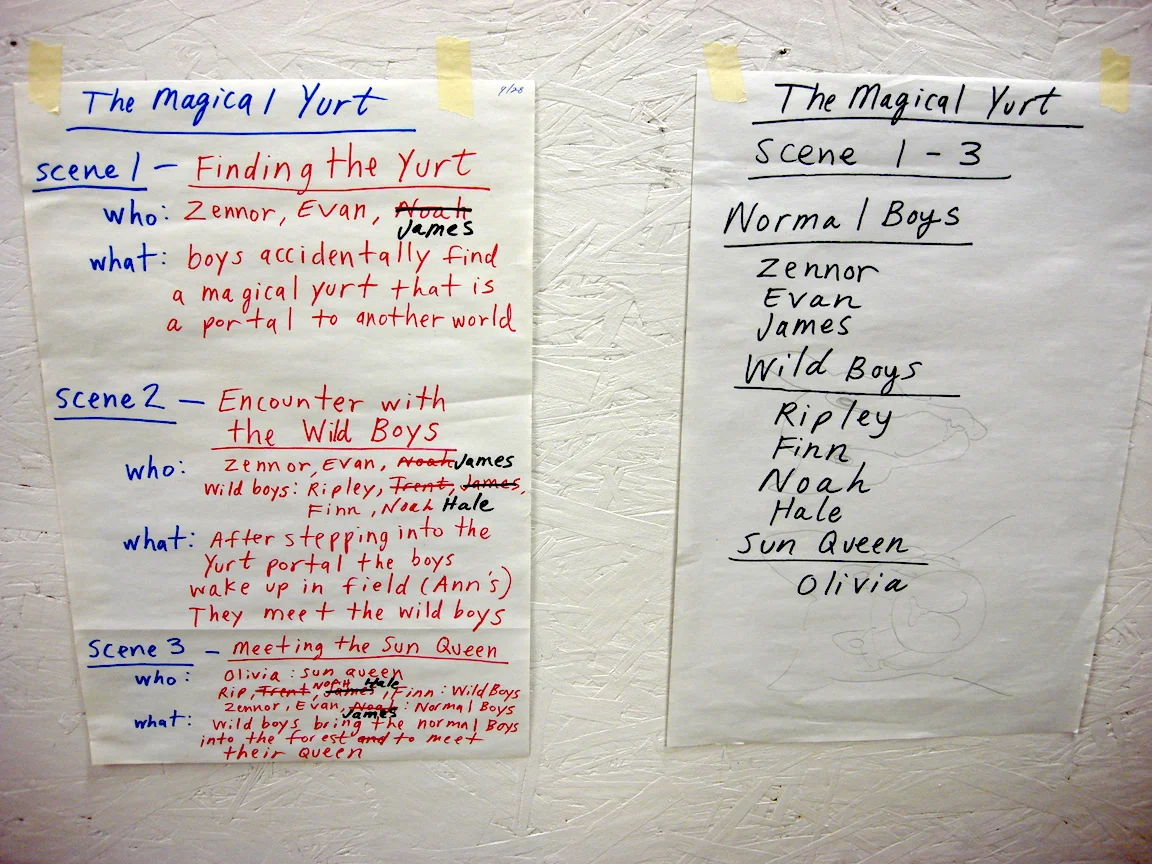 The Magical Yurt
9/28
Scene 1 - Finding the Yurt
who: Zennor, Evan, Noah
James
what: boys accidentally find
a magical yurt that is
a portal to another world
Scene 2 - Encounter with
the Wild Boys
who: Zennor, Evan, Noah James
Wild boys: Ripley, Trent, James,
Finn, Noah Hale
what: After stepping into the
Yurt portal the boys
wake up in field (Ann's)
They meet the wild boys
Scene 3 - meeting the Sun Queen
who: Olivia: sun queen
Rip, Trent, Noah James Hale, Finn: Wild Boys
Zennor, Evan, Noah: Normal Boys
James
what: Wild boys bring the normal Boys
into the forest and to meet
their Queen
The Magical Yurt
Scene 1-3
Normal Boys
Zennor
Evan
James
Wild Boys
Ripley
Finn
Noah
Hale
Sun Queen
Olivia